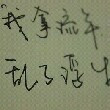 "我拿流年
乱了浮生